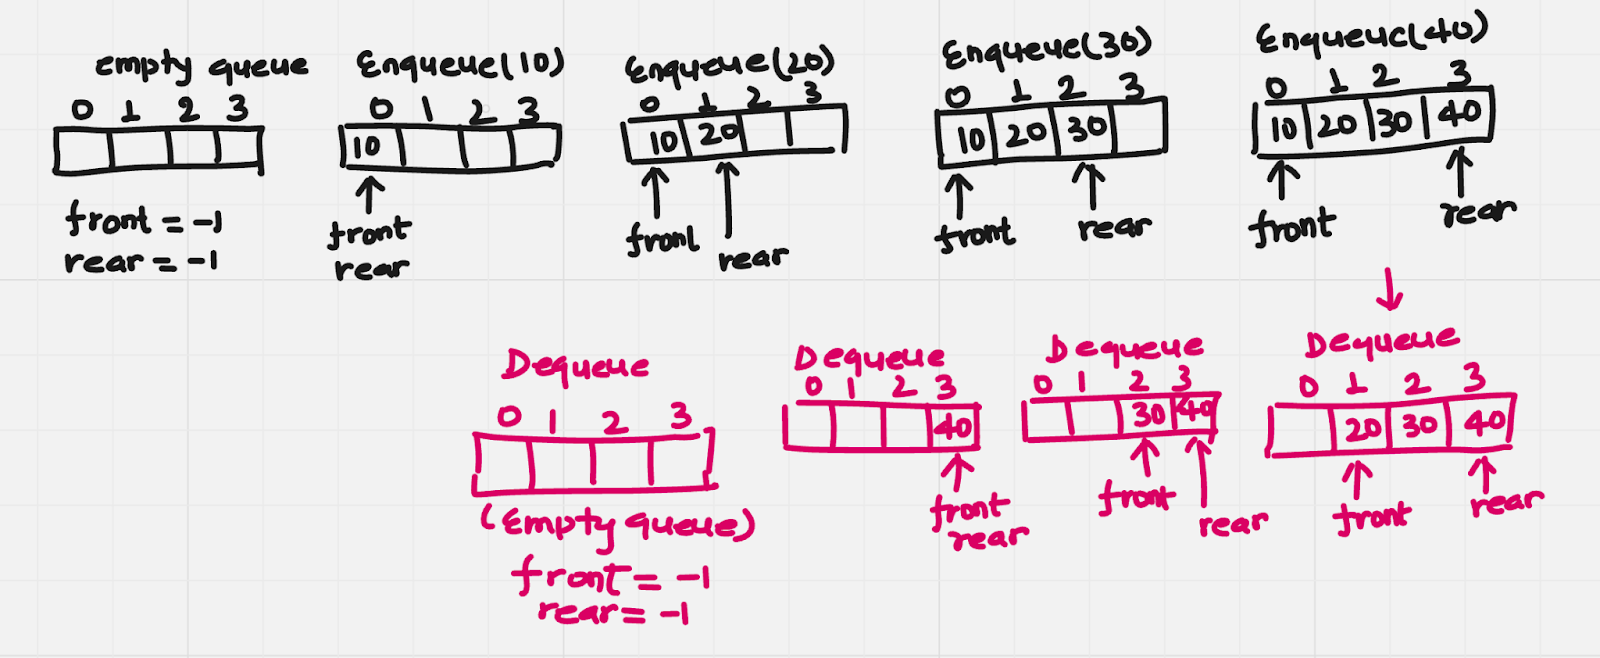 empty queue
0 1 2 3
front = -1
rear = -1
Enqueue(10)
0 1 2 3
10
front
rear
Enqueue(20)
0 1 2 3
10 20
front
rear
Enqueue(30)
0 1 2 3
10 20 30
front
rear
Enqueue(40)
0 1 2 3
10 20 30 40
front
rear
Dequeue
0 1 2 3
20 30 40
front
rear
Dequeue
0 1 2 3
30 40
front
rear
Dequeue
0 1 2 3
40
front
rear
Dequeue
0 1 2 3
(Empty queue)
front = -1
rear = -1